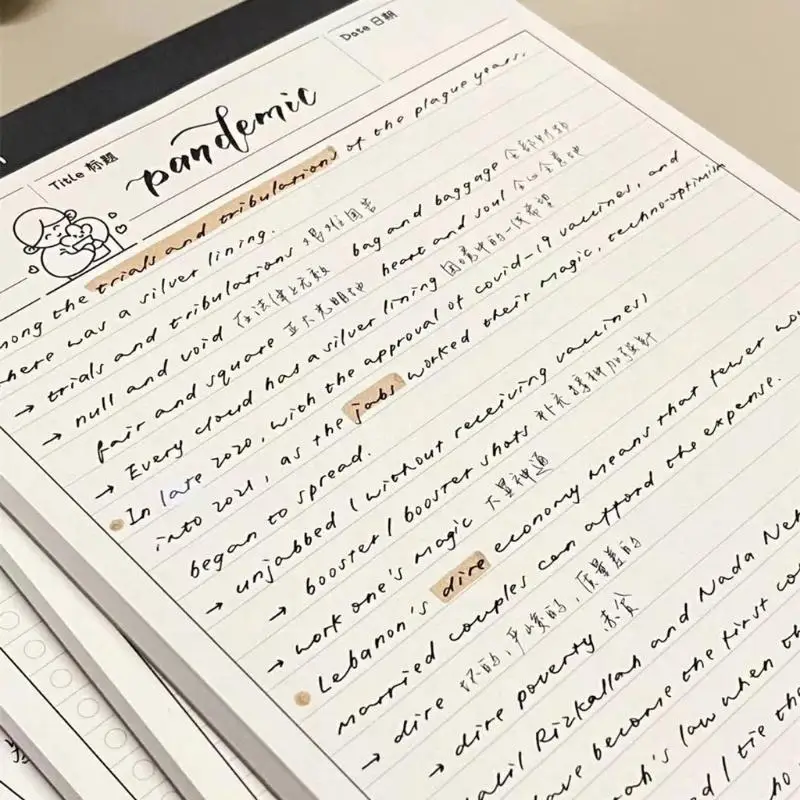 Date 日期
Title 标题
pandemic
mong the trials and tribulations of the plague years,
here was a silver lining.
→ trials and tribulations 艰难困苦
→ null and void 在法律上无效 bag and baggage 全部财物
fair and square 正大光明地 heart and soul 全心全意地
→ Every cloud has a silver lining 困境中的一线希望
In late 2020, with the approval of covid-19 vaccines, and
into 2021, as the jabs worked their magic, techno-optimism
began to spread.
→ unjabbed / without receiving vaccines
→ booster / booster shots 补充接种加强针
→ work one's magic 大显神通
Lebanon's dire economy means that fewer
married couples can afford the expense.
→ dire 坏的,严峻的,质量差的
→ dire poverty 赤贫
Rizkallah and Nada
ave become the first
law when
I tie